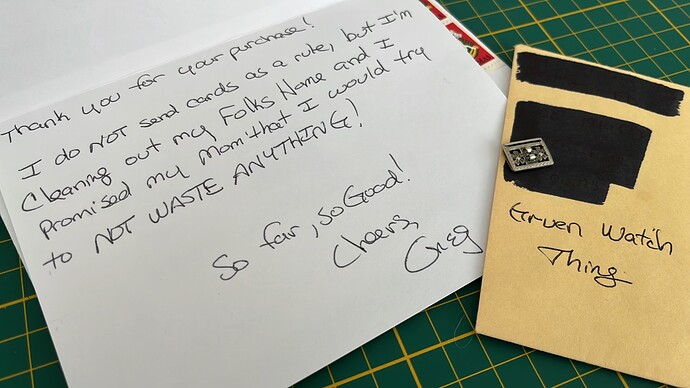 Thank you for your purchase!
I do NOT send cards as a rule, but I'm
Cleaning out my Folks Home and I
Promised my Mom that I would try
to NOT WASTE ANYTHING!
So far, so Good!
Cheers,
Greg
Gruen Watch
Thing